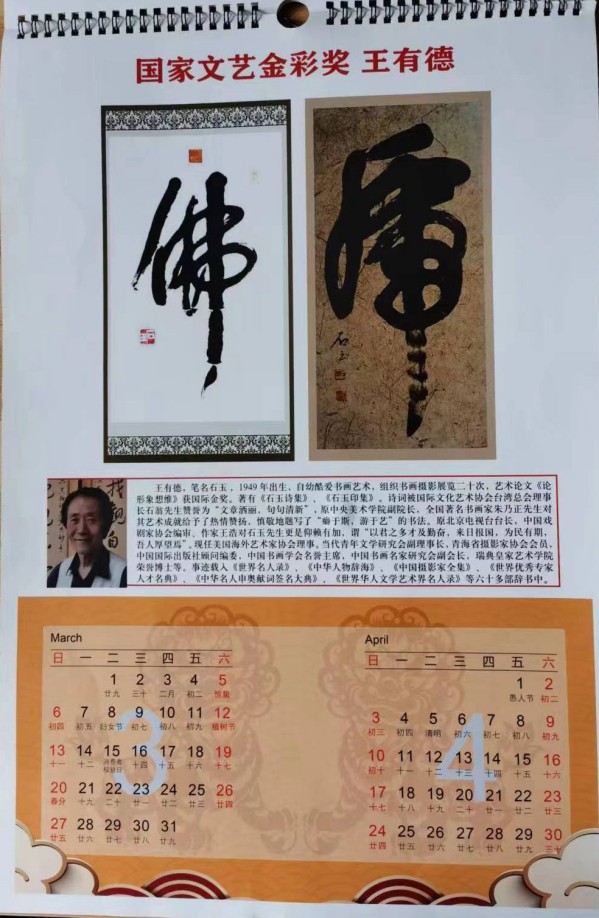 国家文艺金彩奖 王有德
佛
虎
石玉
王有德，笔名石玉，1949年出生，自幼酷爱书画艺术，组织书画摄影展览二十次，艺术论文《论
形象想维》获国际金奖。著有《石玉诗集》、《石玉印集》。诗词被国际文化艺术协会台湾总会理事
长石翁先生赞誉为“文章洒丽，句句清新”，原中央美术学院副院长，全国著名书画家朱乃正先生对
其艺术成就给予了热情赞扬，慎敬地题写了“癖于斯，游于艺”的书法。原北京电视台台长，中国戏
剧家协会编审、作家王浩对石玉先生更是仰赖有加，谓“以君之多才及勤奋，来日报国，为民有期，
吾人厚望焉”。现任美国海外艺术家协会理事。当代青年文学研究会副理事长，青海省摄影家协会会员，
中国国际出版社顾问编委，中国书画学会名誉主席，中国书画名家研究会副会长，瑞典皇家艺术学院
荣誉博士等。事迹载入《世界名人录》、《中华人物辞海》、《中国摄影家全集》、《世界优秀专家
人才名典》、《中华名人申奥献词签名大典》、《世界华人文学艺术界名人录》等六十多部辞书中。
March
日 一 二 三 四 五 六
1 2 3 4 5
廿九 三十 二月 初二 惊蛰
6 7 8 9 10 11 12
初四 初五 妇女节 初七 初八 初九 植树节
13 14 15 16 17 18 19
十一 十二 消费者权益日 十四 十五 十六 十七
20 21 22 23 24 25 26
春分 十九 二十 廿一 廿二 廿三 廿四
27 28 29 30 31
廿五 廿六 廿七 廿八 廿九
3
April
日 一 二 三 四 五 六
1 2
愚人节 初二
3 4 5 6 7 8 9
初三 初四 清明 初六 初七 初八 初九
10 11 12 13 14 15 16
初十 十一 十二 十三 十四 十五 十六
17 18 19 20 21 22 23
十七 十八 十九 二十 廿一 廿二 廿三
24 25 26 27 28 29 30
廿四 廿五 廿六 廿七 廿八 廿九 三十
4